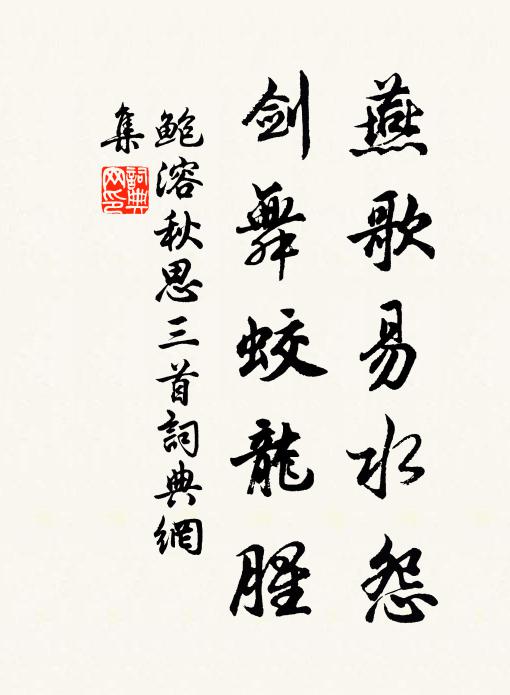 燕歌易水怨
剑舞蛟龍腥
鲍溶秋思三首詞典網
集
詞典
网印